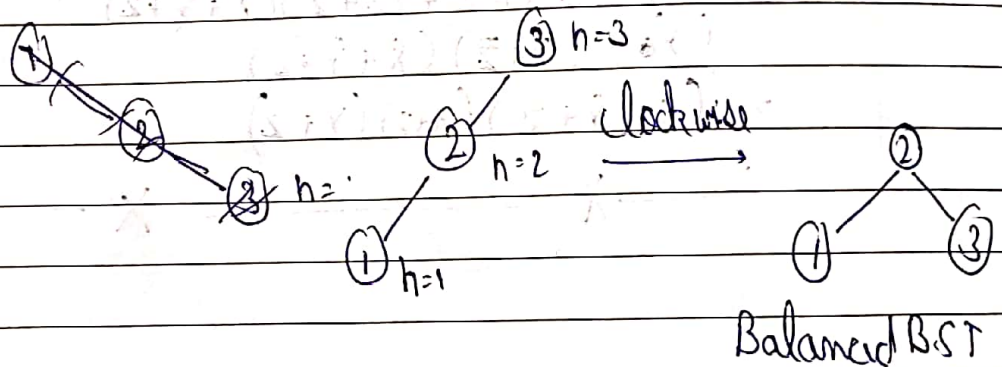 1
2
3 h=
3 h=3
2 h=2
1 h=1
Clockwise
2
1 3
Balanced B.S.T